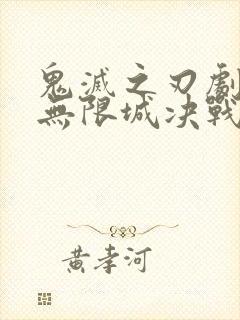 鬼滅之刃劇
無限城决戰
黄孝河